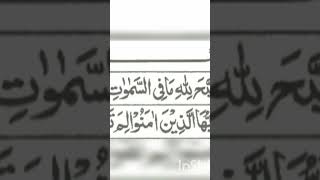 بَّحَ لِلّٰهِ مَا فِي السَّمٰوٰتِ
يُّهَا الَّذِيْنَ اٰمَنُوْا لِمَ تَ